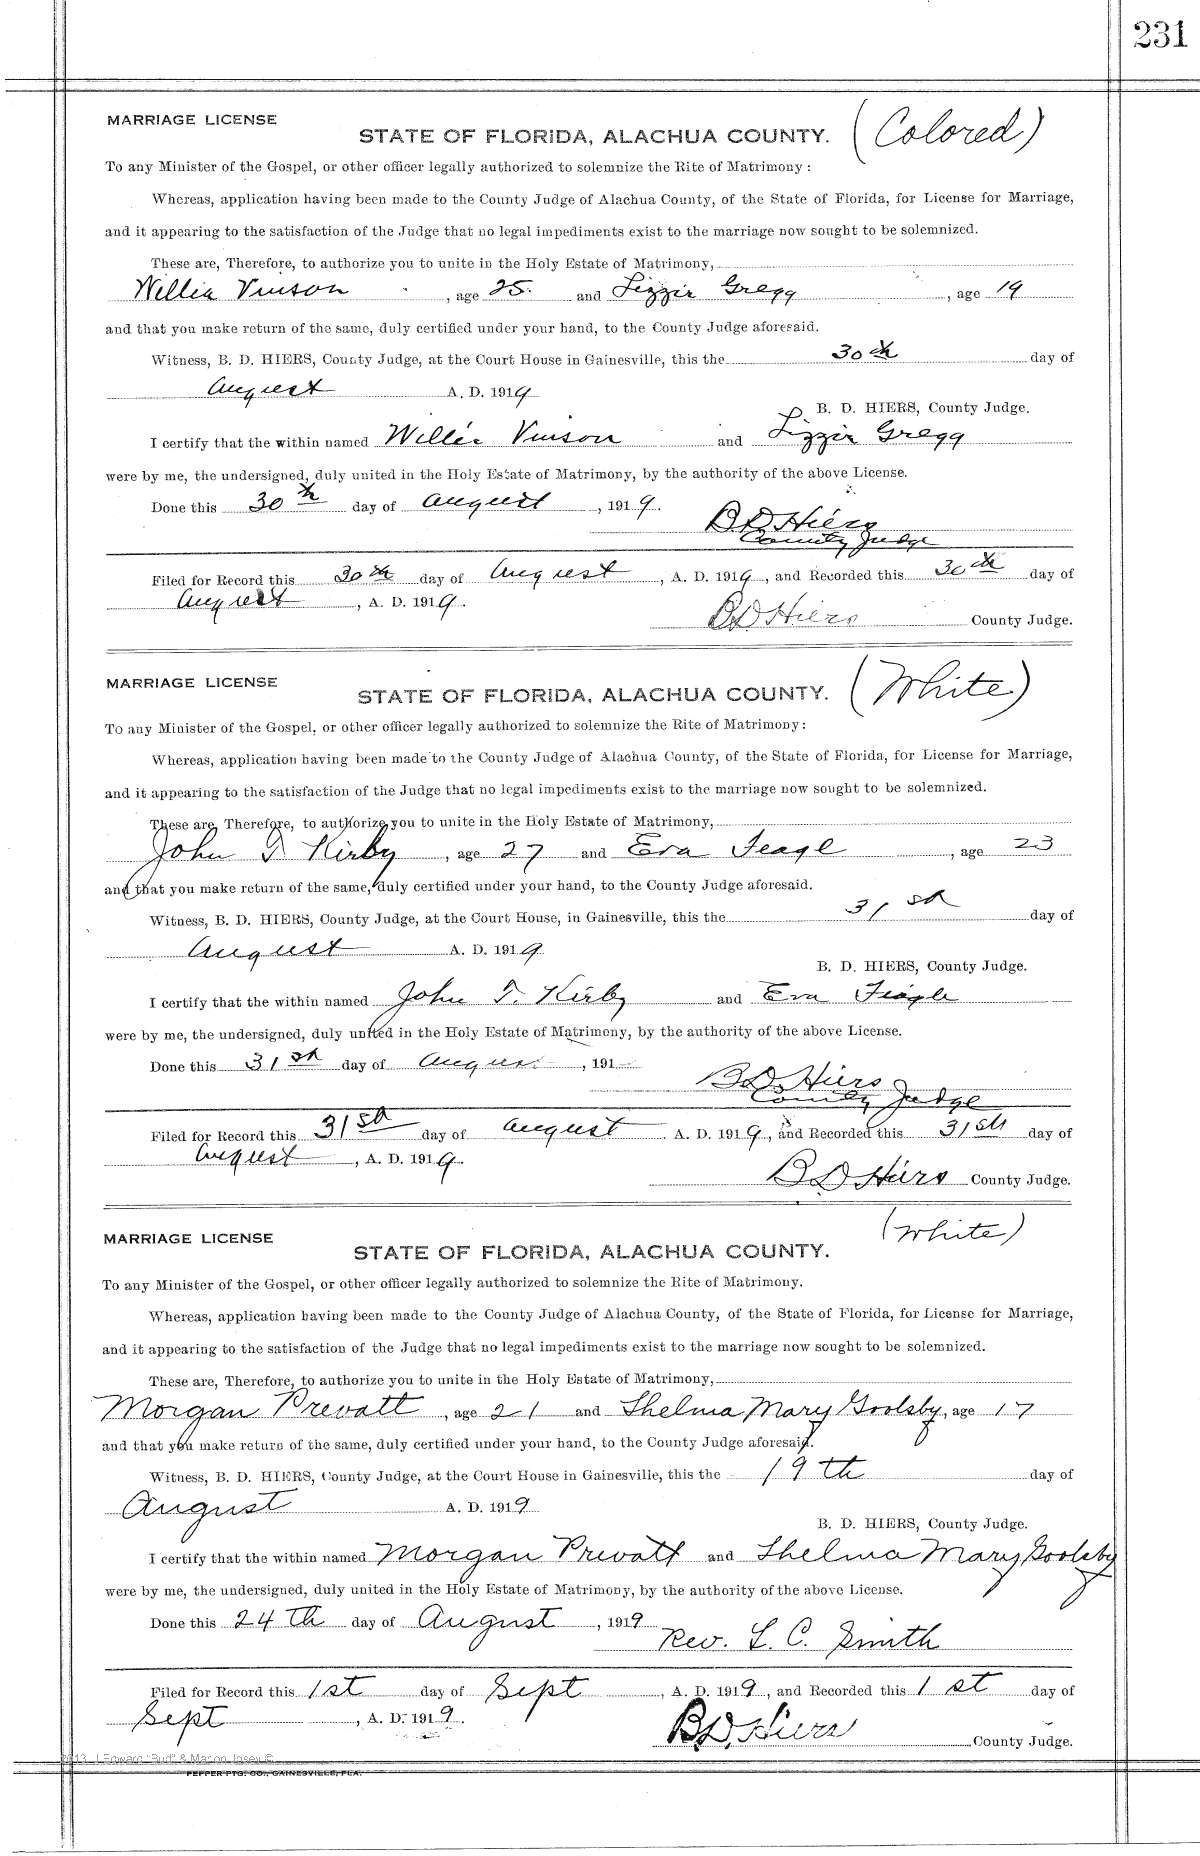 231
MARRIAGE LICENSE
STATE OF FLORIDA, ALACHUA COUNTY. (Colored)
To any Minister of the Gospel, or other officer legally authorized to solemnize the Rite of Matrimony :
Whereas, application having been made to the County Judge of Alachua County, of the State of Florida, for License for Marriage,
and it appearing to the satisfaction of the Judge that no legal impediments exist to the marriage now sought to be solemnized.
These are, Therefore, to authorize you to unite in the Holy Estate of Matrimony,
Willie Vinson , age 25 and Lizzie Gregg , age 19
and that you make return of the same, duly certified under your hand, to the County Judge aforesaid.
Witness, B. D. HIERS, County Judge, at the Court House in Gainesville, this the 30th day of
August A. D. 1919
B. D. HIERS, County Judge.
I certify that the within named Willie Vinson and Lizzie Gregg
were by me, the undersigned, duly united in the Holy Estate of Matrimony, by the authority of the above License.
Done this 30th day of August , 1919.
B D Hiers
County Judge
Filed for Record this 30th day of August , A. D. 1919 , and Recorded this 30th day of
August , A. D. 1919.
B D Hiers County Judge.
MARRIAGE LICENSE
STATE OF FLORIDA, ALACHUA COUNTY. (White)
To any Minister of the Gospel, or other officer legally authorized to solemnize the Rite of Matrimony:
Whereas, application having been made to the County Judge of Alachua County, of the State of Florida, for License for Marriage,
and it appearing to the satisfaction of the Judge that no legal impediments exist to the marriage now sought to be solemnized.
These are, Therefore, to authorize you to unite in the Holy Estate of Matrimony,
John T Kirby , age 27 and Eva Feagle , age 23
and that you make return of the same, duly certified under your hand, to the County Judge aforesaid.
Witness, B. D. HIERS, County Judge, at the Court House, in Gainesville, this the 31st day of
August A. D. 1919
B. D. HIERS, County Judge.
I certify that the within named John T. Kirby and Eva Feagle
were by me, the undersigned, duly united in the Holy Estate of Matrimony, by the authority of the above License.
Done this 31st day of August , 191
B D Hiers
County Judge
Filed for Record this 31st day of August . A. D. 1919, and Recorded this 31st day of
August , A. D. 1919.
B D Hiers County Judge.
MARRIAGE LICENSE
STATE OF FLORIDA, ALACHUA COUNTY. (White)
To any Minister of the Gospel, or other officer legally authorized to solemnize the Rite of Matrimony.
Whereas, application having been made to the County Judge of Alachua County, of the State of Florida, for License for Marriage,
and it appearing to the satisfaction of the Judge that no legal impediments exist to the marriage now sought to be solemnized.
These are, Therefore, to authorize you to unite in the Holy Estate of Matrimony,
Morgan Prevatt , age 21 and Thelma Mary Goolsby, age 17
and that you make return of the same, duly certified under your hand, to the County Judge aforesaid.
Witness, B. D. HIERS, County Judge, at the Court House in Gainesville, this the 19th day of
August A. D. 1919
B. D. HIERS, County Judge.
I certify that the within named Morgan Prevatt and Thelma Mary Goolsby
were by me, the undersigned, duly united in the Holy Estate of Matrimony, by the authority of the above License.
Done this 24th day of August , 1919
Rev. L. C. Smith
Filed for Record this 1st day of Sept , A. D. 1919 , and Recorded this 1st day of
Sept , A. D. 1919.
B. D. Hiers County Judge.
J Edward "Bud" & Macon Josey ©
PEPPER PTG. CO., GAINESVILLE, FLA.